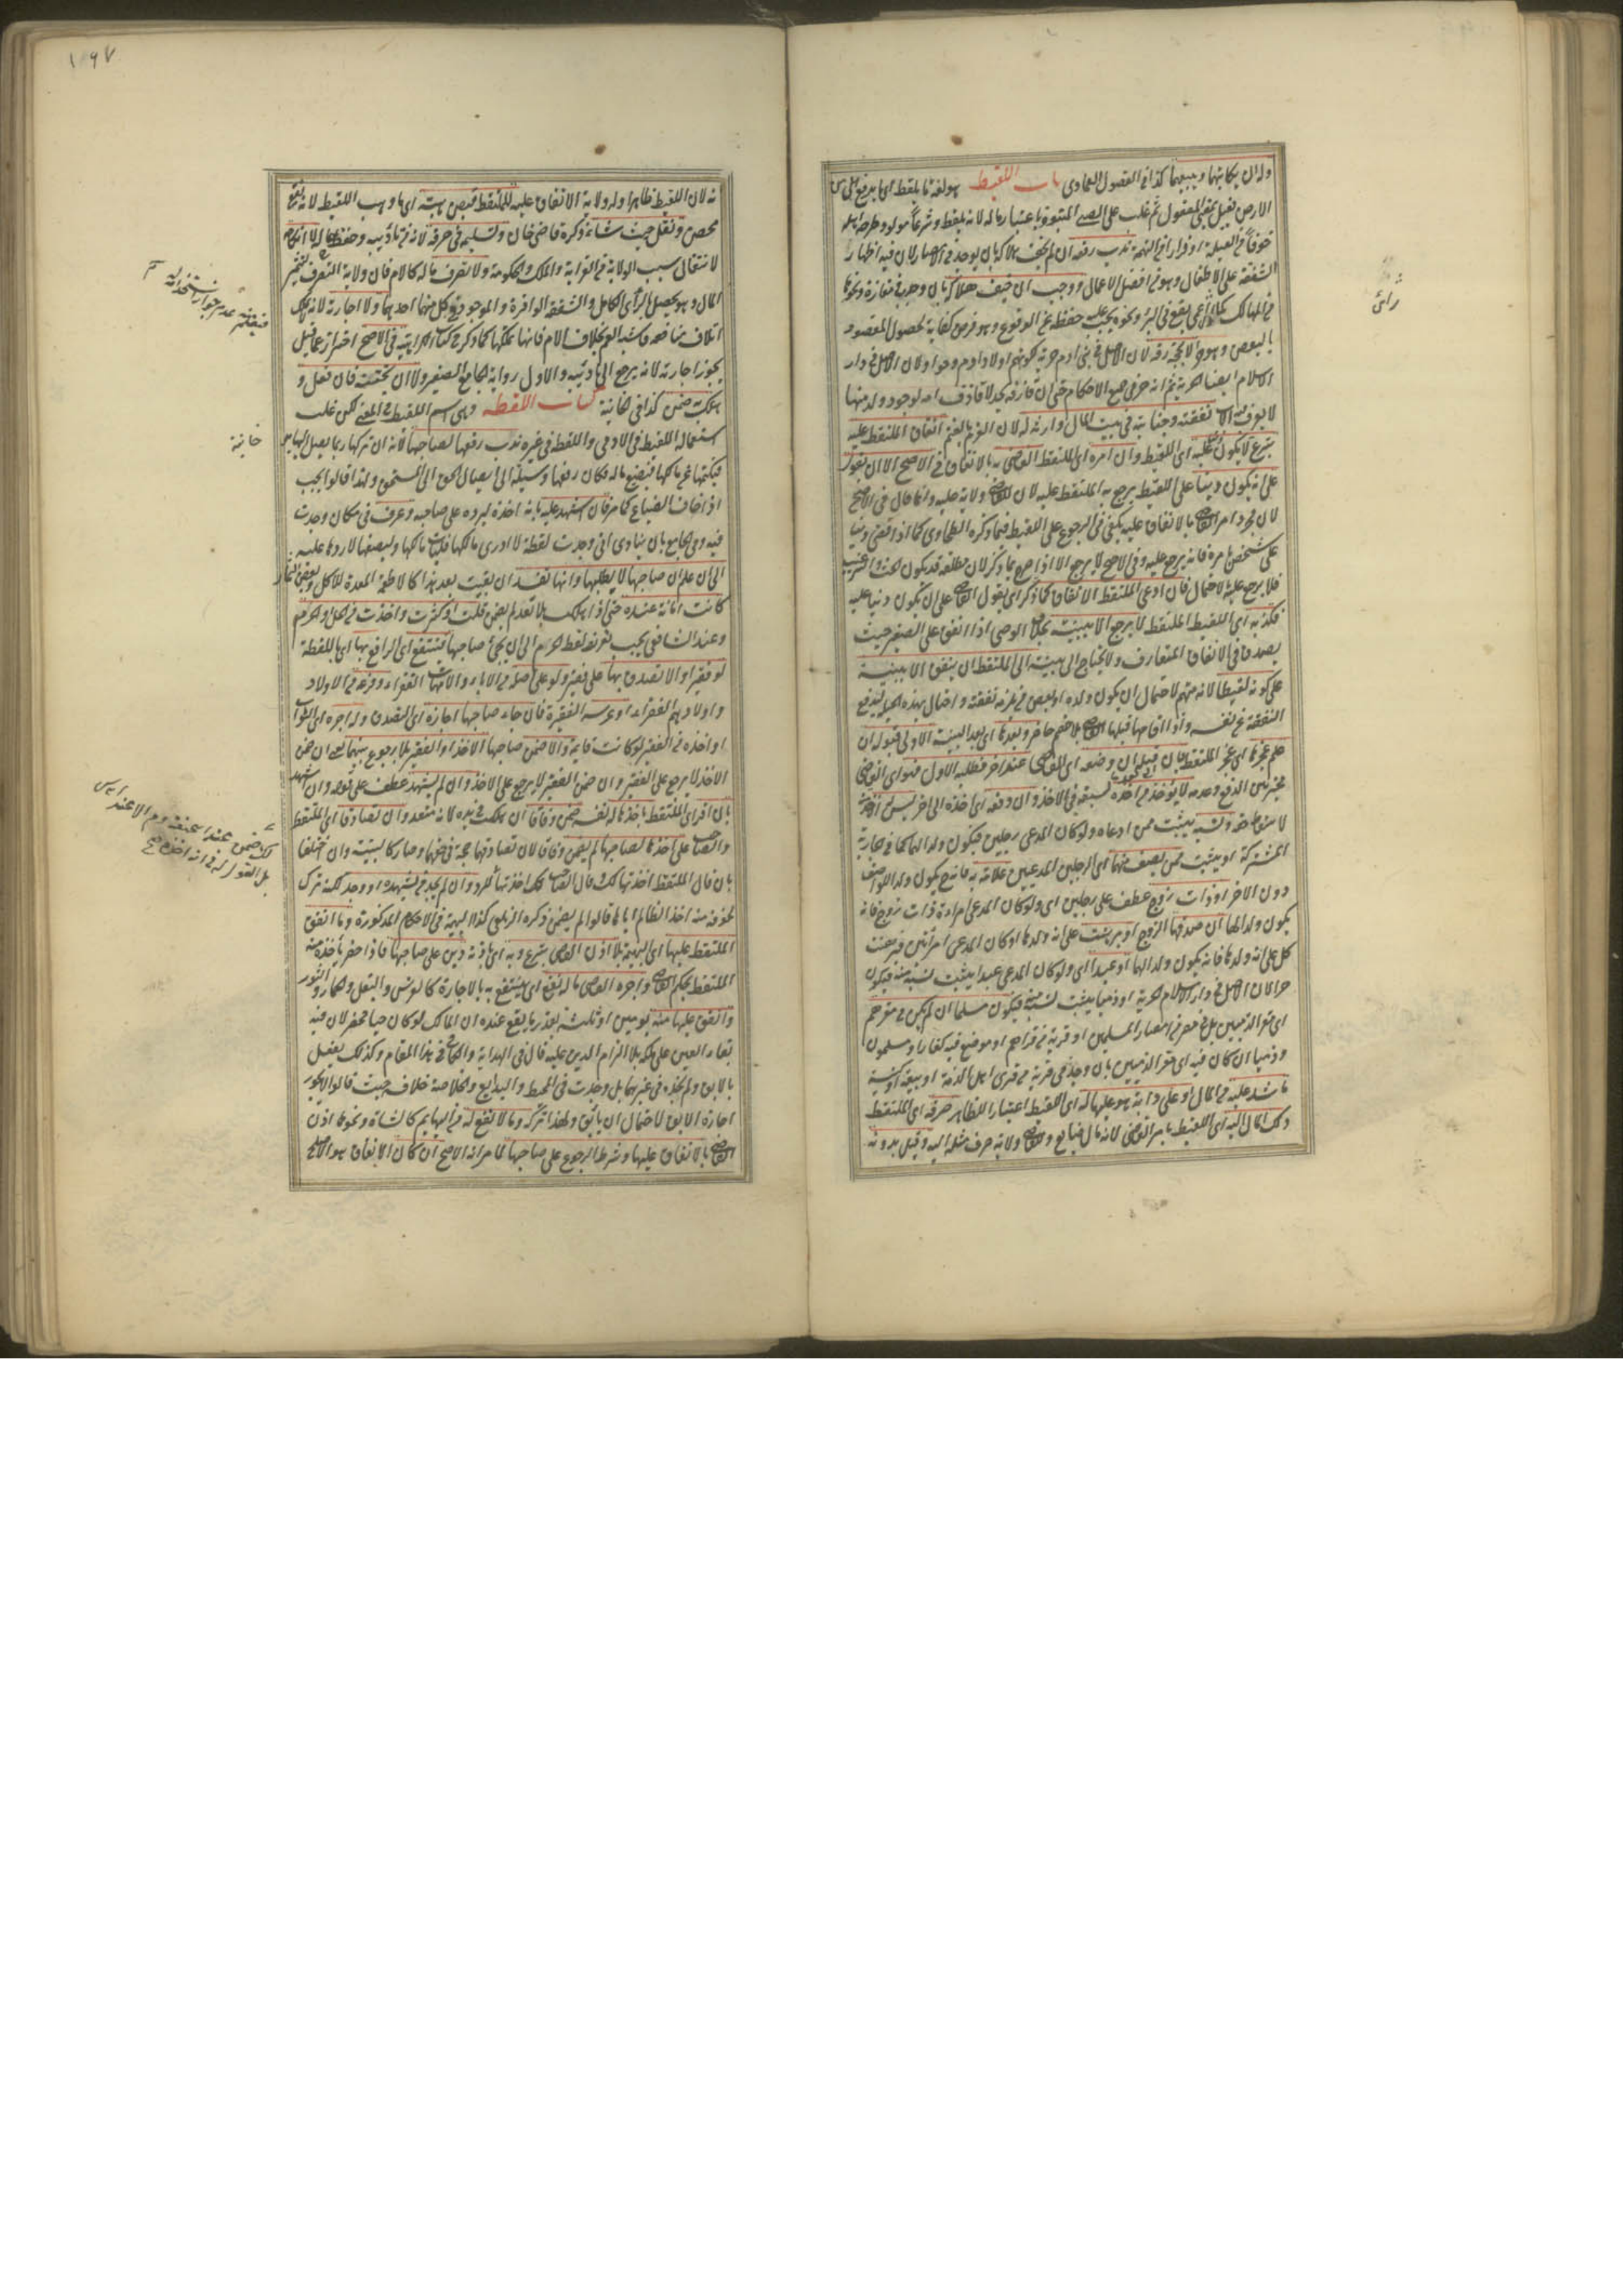 وله ان يكاتبها ويبيعها كذا في الفصول العمادي باب اللقيط هو لغة ما يلقط اي يرفع من
الارض فعيل بمعنى المفعول ثم غلب على الصبي المنبوذ باعتبار ماله لانه يلقط وشرعا مولود طرحه اهله
خوفا من العيلة او فرارا من التهمة ندب رفعه ان لم يخف هلاكه بان يوجد في الامصار لان فيه اظهار
الشفقة على الاطفال وهو من افضل الاعمال ووجب ان خيف هلاكه بان وجد في مفازة ونحوها
من المهالك كما لو راى اعمى يقع في البئر ونحوه يجب عليه حفظه عن الوقوع وهو فرض كفاية لحصول المقصود
بالبعض وهو حر الا بحجة رقه لان الاصل في بني ادم حرية لكونهم اولاد ادم وحوا ولان الاصل في دار
الاسلام ايضا الحرية ثم انه حر في جميع الاحكام حتى ان قاذفه يحد لا قاذف امه لوجود ولد منها
لا يعرف له اب نفقته وجنايته في بيت المال وارثه له لان الغرم بالغنم انفاق الملتقط عليه
تبرع لا يكون دينا عليه اي اللقيط وان امره اي الملتقط القاضي به بالانفاق في الاصح الا ان يقول
على ان يكون دينا على اللقيط يرجع به الملتقط عليه لان للقاضي ولاية عليه وانما قال في الاصح
لان مجرد امر القاضي بالانفاق عليه يكفي في الرجوع على اللقيط فيما ذكره الطحاوي كما اذا قضى دينا
على شخص بامره فانه يرجع عليه وفي الاصح لا يرجع الا اذا صرح بما ذكر لان مطلقه قد يكون للحث والترغيب
فلا يرجع عليه بالاحتمال فان ادعى الملتقط الانفاق كما ذكر اي بقول القاضي على ان يكون دينا عليه
فكذبه اي اللقيط الملتقط لا يرجع الا ببينة بخلاف الوصي اذا انفق على الصغير حيث
يصدق في الانفاق المتعارف ولا يحتاج الى بينة الى الملتقط ان ينفق الا ببينة
على كونه لقيطا لانه متهم لاحتمال ان يكون ولده او بعض من يلزمه نفقته واحتال بهذه الحيلة ليدفع
النفقة عن نفسه واذا اقامها قبلها القاضي بلا خصم حاضر وبعدها اي بعد البينة الاولى قبوله ان
علم عجزه اي عجز الملتقط فان قبل ان وضعه اي القاضي عند اخر فطلبه الاول فهو اي القاضي
مخير بين الدفع وعدمه لا يؤخذ من اخذه لسبقه في الاخذ وان دفعه اي اخذه الى اخر ليس له اخذه منه
لاسقاط حقه ونسبه يثبت ممن ادعاه ولو كان المدعي رجلين فيكون ولدا لهما كما في الجارية
المشتركة او يثبت ممن يصف منهما اي الرجلين المدعيين علامة به فانه يكون ولد الواصف
دون الاخر او ذات زوج عطف على رجلين اي ولو كان المدعي امراة ذات زوج فانه
يكون ولدا لها ان صدقها الزوج او برهنت على انه ولدها او كان المدعي امراتين فبرهنت
كل على انه ولدها فانه يكون ولدا لهما او عبدا اي ولو كان المدعي عبدا يثبت نسبه منه فيكون
حرا لان الاصل في دار الاسلام الحرية او ذميا يثبت نسبه منه فيكون مسلما ان لم يكن في مقرهم
اي مقر الذميين بل في مصر من امصار المسلمين او قرية من قراهم او موضع فيه كفار او مسلمون
وذميا ان كان فيه اي مقر الذميين بان وجد في قرية من قرى اهل الذمة او بيعة او كنيسة
ما شد عليه من المال او على دابة هو عليها له اي اللقيط اعتبارا للظاهر صرفه اي الملتقط
ذلك المال اليه اي اللقيط بامر القاضي لانه مال ضايع وللقاضي ولاية صرف مثله اليه وقيل بدونه
راى
١٩٧
نه لان اللقيط ظاهرا وله ولاية الانفاق عليه للملتقط قبض هبته اي ما وهب اللقيط لانه نفع
محض ونقل حيث شاء ذكره قاضي خان وتسليمه في حرفة لانه من تاديبه وحفظ ماله لا انكاحه
لانتفاء سبب الولاية من القرابة والملك والحكومة ولا تصرف ماله كالام فان ولاية التصرف لتثمير
المال وهو يحصل بالراي الكامل والشفقة الوافرة والموجود في كل منهما احدهما ولا اجارته لانه لا يملك
اتلاف منافعه فاشبه العم بخلاف الام فانها تملكها كما ذكر في كتاب الكراهية في الاصح احتراز عما قيل
يجوز اجارته لانه يرجع الى تاديبه والاول رواية الجامع الصغير ولا ان يختنه فان فعل و
هلك به ضمن كذا في الخانية كتاب اللقطه وهي اسم اللقيط في المعنى لكن غلب
استعمال اللقيط في الادمي واللقطة في غيره ندب رفعها لصاحبها لانه ان تركها ربما يصل اليها يد
فيكتمها عن مالكها فيضيع ماله فكان رفعها وسيلة الى ايصال الحق الى المستحق ولهذا قالوا يجب
اذا خاف الضياع كما مر فان اشهد عليه بانه اخذه ليرده على صاحبه وعرف في مكان وجدت
فيه وفي الجامع بان ينادي اني وجدت لقطة لا ادري مالكها فليات مالكها وليصفها لاردها عليه
الى ان علم ان صاحبها لا يطلبها وانها تفسد ان بقيت بعد هذا كالاطعمة المعدة للاكل وبعض الثمار
كانت امانة عنده حتى اذا هلك بلا تعد لم يضمن قلت او كثرت واخذت في الحل والحرم
وعند الشافعي يجب تعريف لقطة الحرم الى ان يجيء صاحبها فينتفع اي الرافع بها اي باللقطة
لو فقيرا والا تصدق بها على فقير ولو على اصله من الاباء والامهات الفقراء وفرعه من الاولاد
واولادهم الفقراء او عرسه الفقيرة فان جاء صاحبها اجازه اي التصدق وله اجره اي الثواب
او اخذه من الفقير لو كانت قايمة والا ضمن صاحبها الاخذ او الفقير بلا رجوع بينهما يعني ان ضمن
الاخذ لا يرجع على الفقير وان ضمن الفقير لا يرجع على الاخذ وان لم يشهد عطف على قوله وان اشهد
بان اقر اي الملتقط باخذها لنفسه ضمن وفاقا ان هلكت في يده لانه متعد وان تصادقا اي الملتقط
والصاحب على اخذها لصاحبها لم يضمن وفاقا لان تصادقهما حجة في حقهما وصار كالبينة وان اختلفا
بان قال الملتقط اخذتها لك وقال الصاحب لك اخذتها للرد وان لم يجد من يشهده او وجد لكنه ترك
لخوفه منه اخذ الظالم اياها قالوا لم يضمن ذكره الزيلعي كذا البهيمة في الاحكام المذكورة وما انفق
الملتقط عليها اي البهيمة بلا اذن القاضي تبرع وبه اي باذنه دين على صاحبها فاذا حضر ياخذه منه
الملتقط بحكم القاضي واجره القاضي ماله نفع اي ينتفع به بالاجارة كالفرس والبغل والحمار والثور
وانفق عليها منه يومين او ثلثة بقدر ما يقع عنده ان المالك لو كان حيا لحضر لان فيه
بقاء العين على ملكه بلا الزام الدين عليه قال في الهداية والكافي في هذا المقام وكذلك يفعل
بالابق ولم اجده في غيرهما بل وجدت في المحيط والبدايع والخلاصة خلافه حيث قالوا لا يجوز
اجارة الابق لاحتمال ان يابق ولهذا تركه وما لا نفع له من البهايم كالشاة ونحوها اذن
القاضي بالانفاق عليها وشرط الرجوع على صاحبها لما مر انه الاصح ان كان الانفاق هو الاصلح
خانية